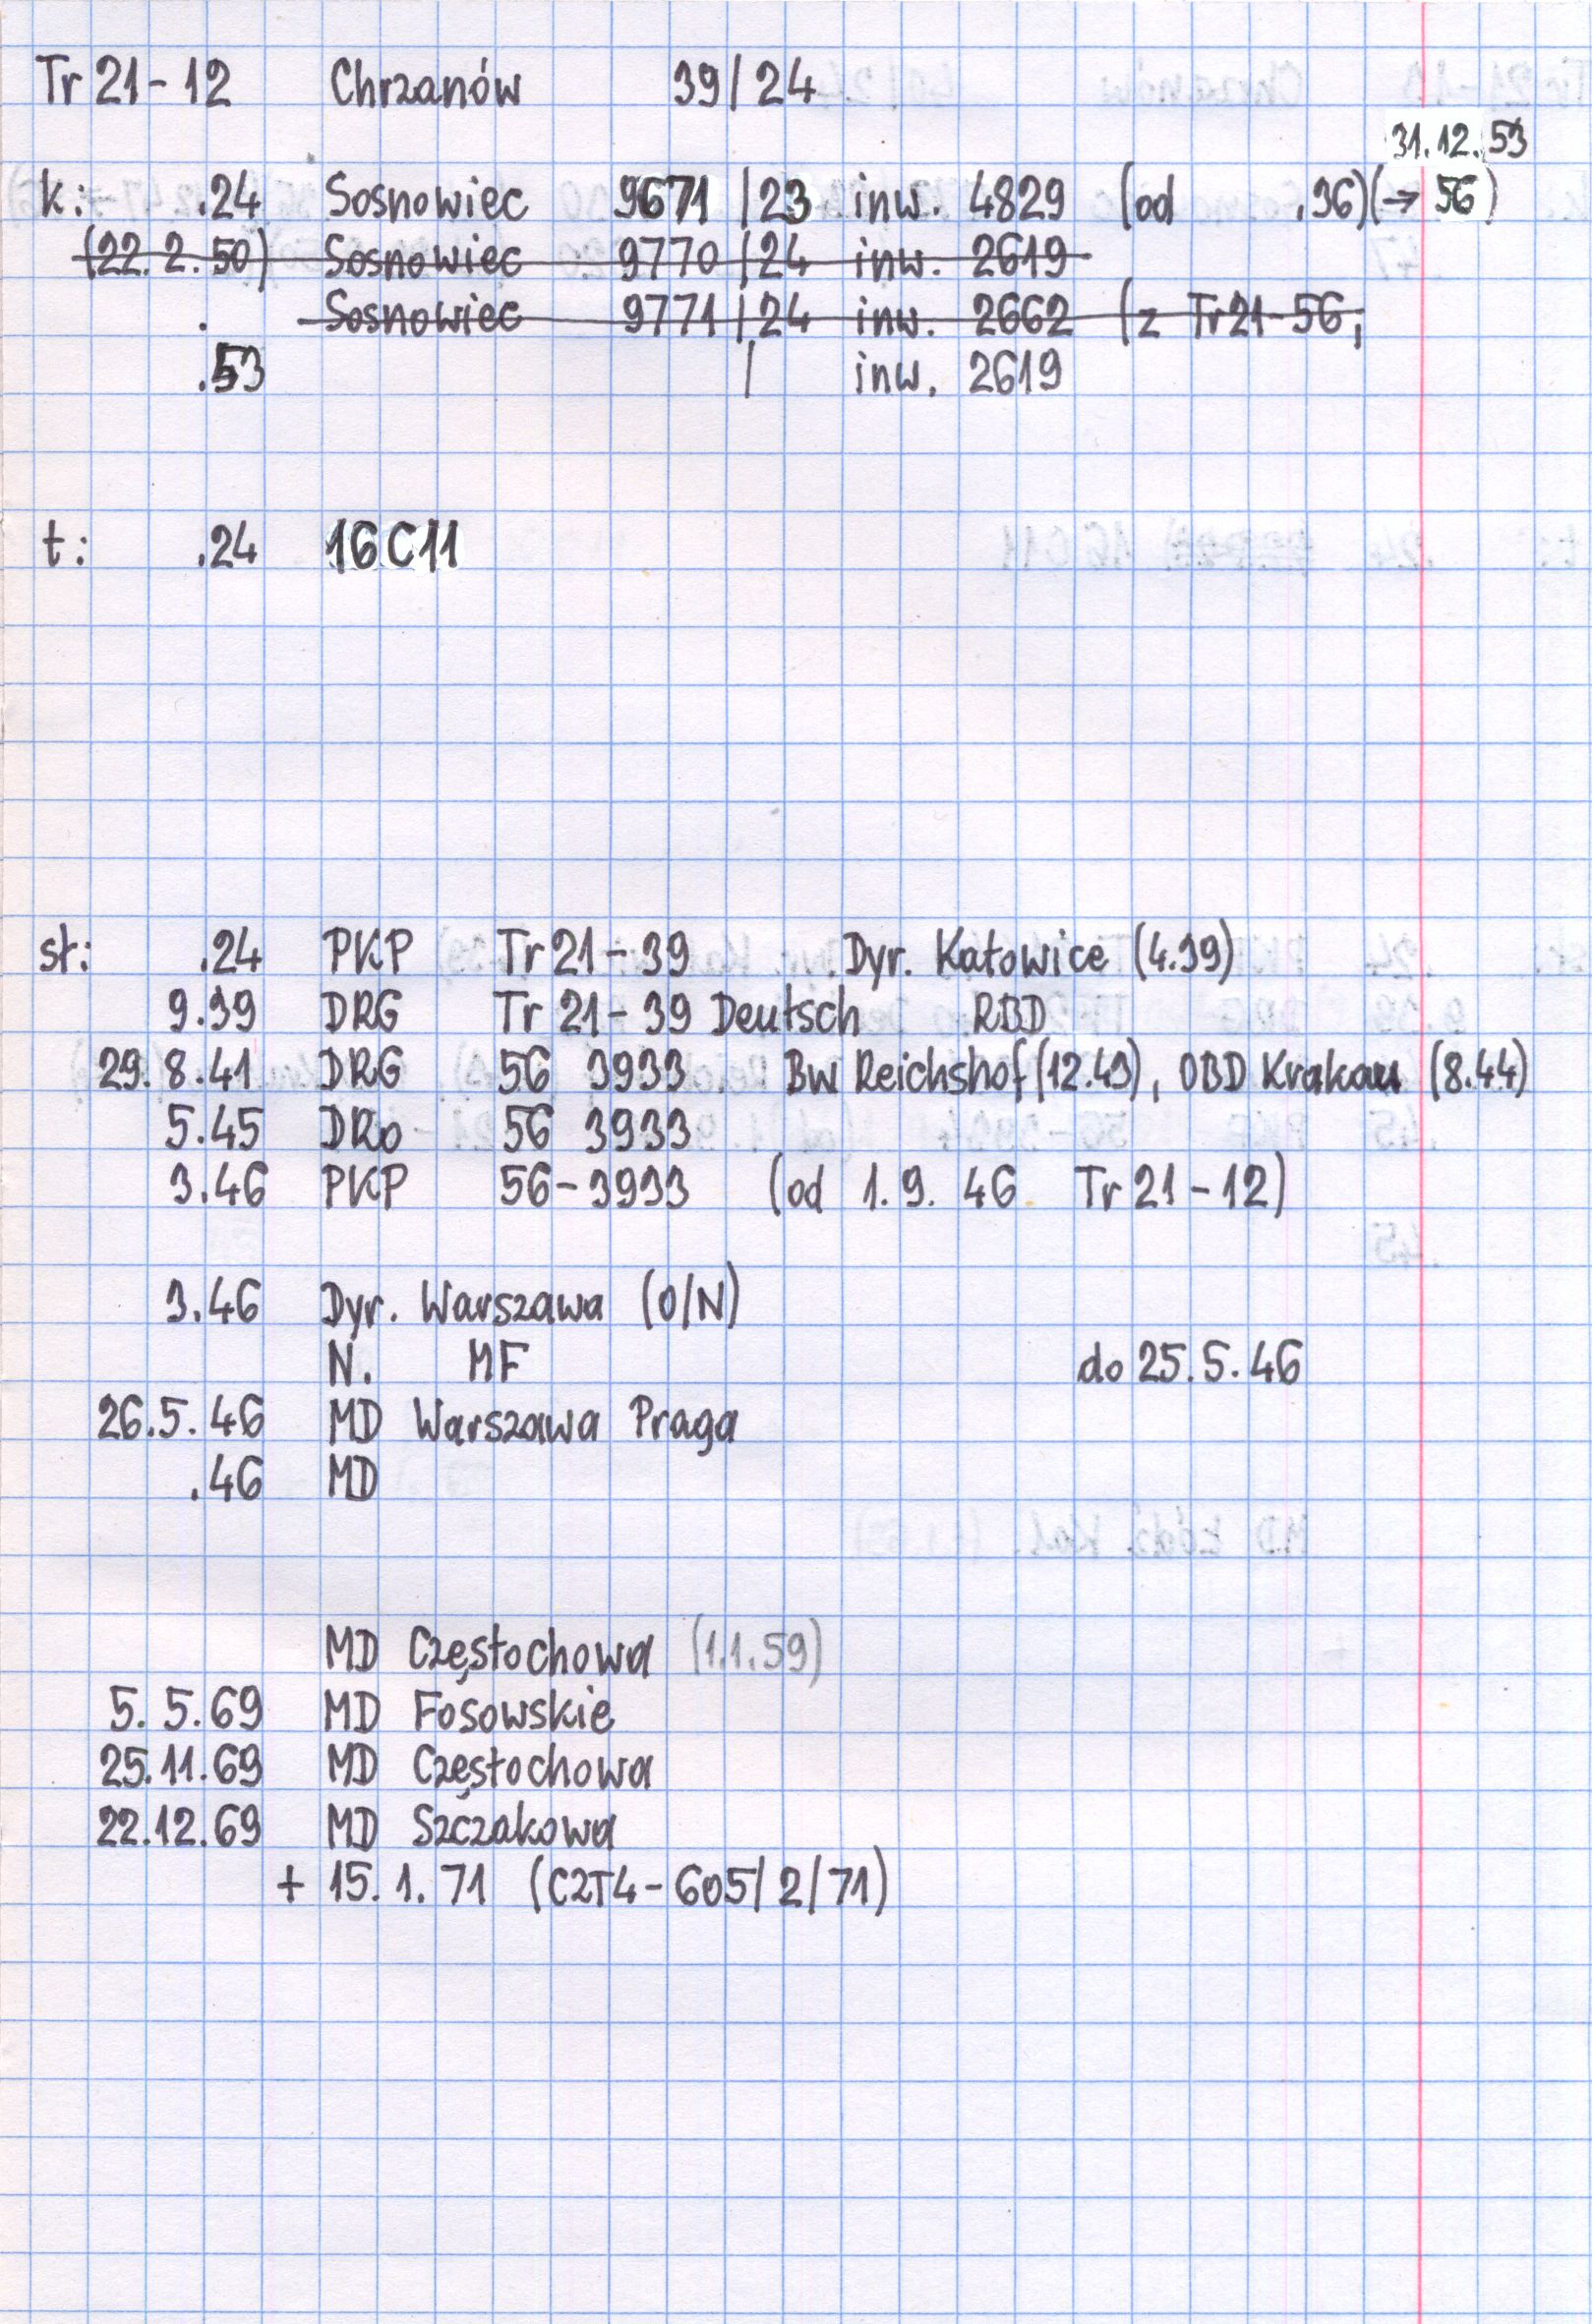 Tr 21-12 Chrzanów 39/24
31.12.53
k: .24 Sosnowiec 9671/23 inw. 4829 (od .36)(→ 56)
(22.2.50) Sosnowiec 9770/24 inw. 2619
. Sosnowiec 9771/24 inw. 2662 (z Tr21-56;
.53 / inw. 2619
t: .24 16C11
st: .24 PKP Tr 21-39 Dyr. Katowice (4.39)
9.39 DRG Tr 21-39 Deutsch RBD
29.8.41 DRG 56 3933 Bw Reichshof (12.43), OBD Krakau (8.44)
5.45 DRo 56 3933
3.46 PKP 56-3933 (od 1.9.46 Tr 21-12)
3.46 Dyr. Warszawa (O/N)
N. MF do 25.5.46
26.5.46 MD Warszawa Praga
.46 MD
MD Częstochowa (1.1.59)
5.5.69 MD Fosowskie
25.11.69 MD Częstochowa
22.12.69 MD Szczakowa
+ 15.1.71 (C2T4-605/2/71)